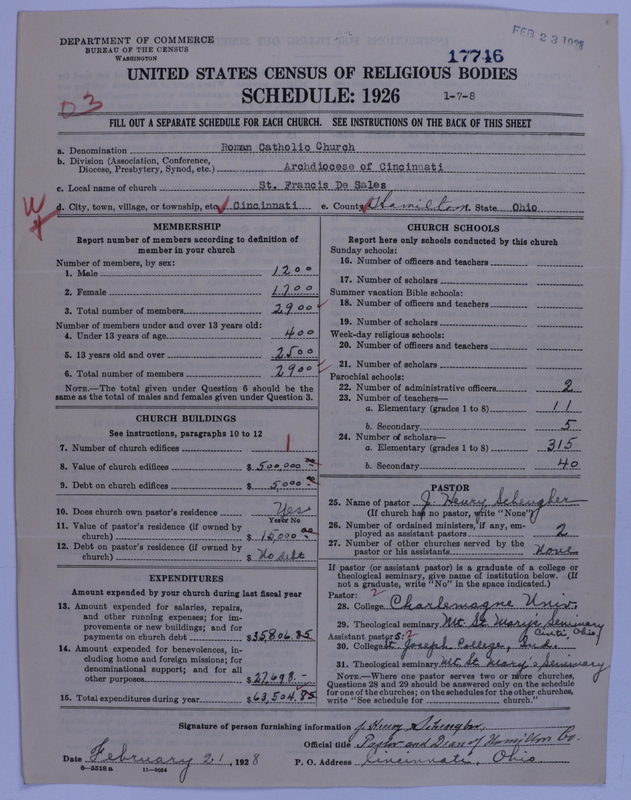 DEPARTMENT OF COMMERCE
BUREAU OF THE CENSUS
WASHINGTON
FEB 23 1928
17746
UNITED STATES CENSUS OF RELIGIOUS BODIES
SCHEDULE: 1926
1-7-8
03
FILL OUT A SEPARATE SCHEDULE FOR EACH CHURCH. SEE INSTRUCTIONS ON THE BACK OF THIS SHEET
a. Denomination Roman Catholic Church
b. Division (Association, Conference,
Diocese, Presbytery, Synod, etc.) Archdiocese of Cincinnati
c. Local name of church St. Francis De Sales
d. City, town, village, or township, etc. Cincinnati e. County Hamilton f. State Ohio
MEMBERSHIP
Report number of members according to definition of
member in your church
Number of members, by sex:
1. Male 1200
2. Female 1700
3. Total number of members 2900
Number of members under and over 13 years old:
4. Under 13 years of age 400
5. 13 years old and over 2500
6. Total number of members 2900
NOTE.—The total given under Question 6 should be the
same as the total of males and females given under Question 3.
CHURCH BUILDINGS
See instructions, paragraphs 10 to 12
7. Number of church edifices 1
8. Value of church edifices $ 500,000 00
9. Debt on church edifices $ 5,000 00
10. Does church own pastor's residence Yes
Yes or No
11. Value of pastor's residence (if owned by
church) $ 15,000 00
12. Debt on pastor's residence (if owned by
church) $ No debt
EXPENDITURES
Amount expended by your church during last fiscal year
13. Amount expended for salaries, repairs,
and other running expenses; for im-
provements or new buildings; and for
payments on church debt $ 35806.85
14. Amount expended for benevolences, in-
cluding home and foreign missions; for
denominational support; and for all
other purposes $ 27,698.-
15. Total expenditures during year $ 63,504.85
CHURCH SCHOOLS
Report here only schools conducted by this church
Sunday schools:
16. Number of officers and teachers
17. Number of scholars
Summer vacation Bible schools:
18. Number of officers and teachers
19. Number of scholars
Week-day religious schools:
20. Number of officers and teachers
21. Number of scholars
Parochial schools:
22. Number of administrative officers 2
23. Number of teachers—
a. Elementary (grades 1 to 8) 11
b. Secondary 5
24. Number of scholars—
a. Elementary (grades 1 to 8) 315
b. Secondary 40
PASTOR
25. Name of pastor J. Henry
(If church has no pastor, write "None")
26. Number of ordained ministers, if any, em-
ployed as assistant pastors 2
27. Number of other churches served by the
pastor or his assistants None
If pastor (or assistant pastor) is a graduate of a college or
theological seminary, give name of institution below. (If
not a graduate, write "No" in the space indicated.)
Pastor: 2
28. College Charlemagne Univ.
29. Theological seminary Mt St. Mary's Seminary
Cinti, Ohio
Assistant pastors: 2
30. College St. Joseph College, Ind.
31. Theological seminary Mt St Mary's Seminary
NOTE.—Where one pastor serves two or more churches,
Questions 28 and 29 should be answered only on the schedule
for one of the churches; on the schedules for the other churches,
write "See schedule for church."
Signature of person furnishing information J. Henry
Official title Pastor and Dean of Hamilton Co.
Date February 21, 1928 P. O. Address Cincinnati, Ohio
8-5518a 11-9034